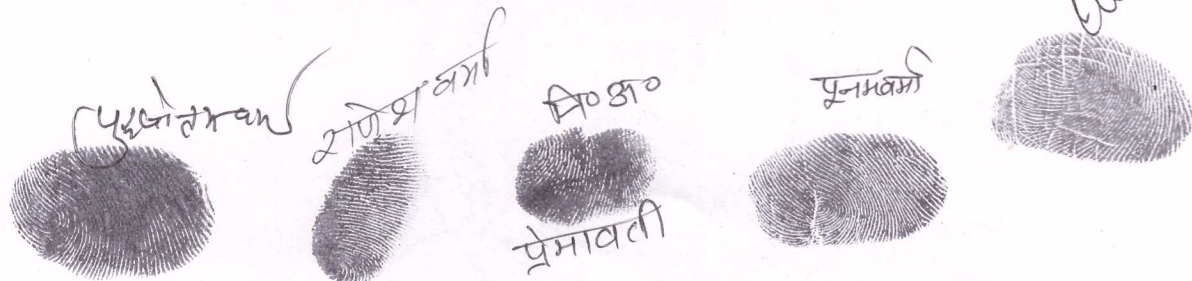 पुरुषोत्तम वर्मा
गणेश वर्मा
नि०अ०
प्रेमावती
पूनम वर्मा